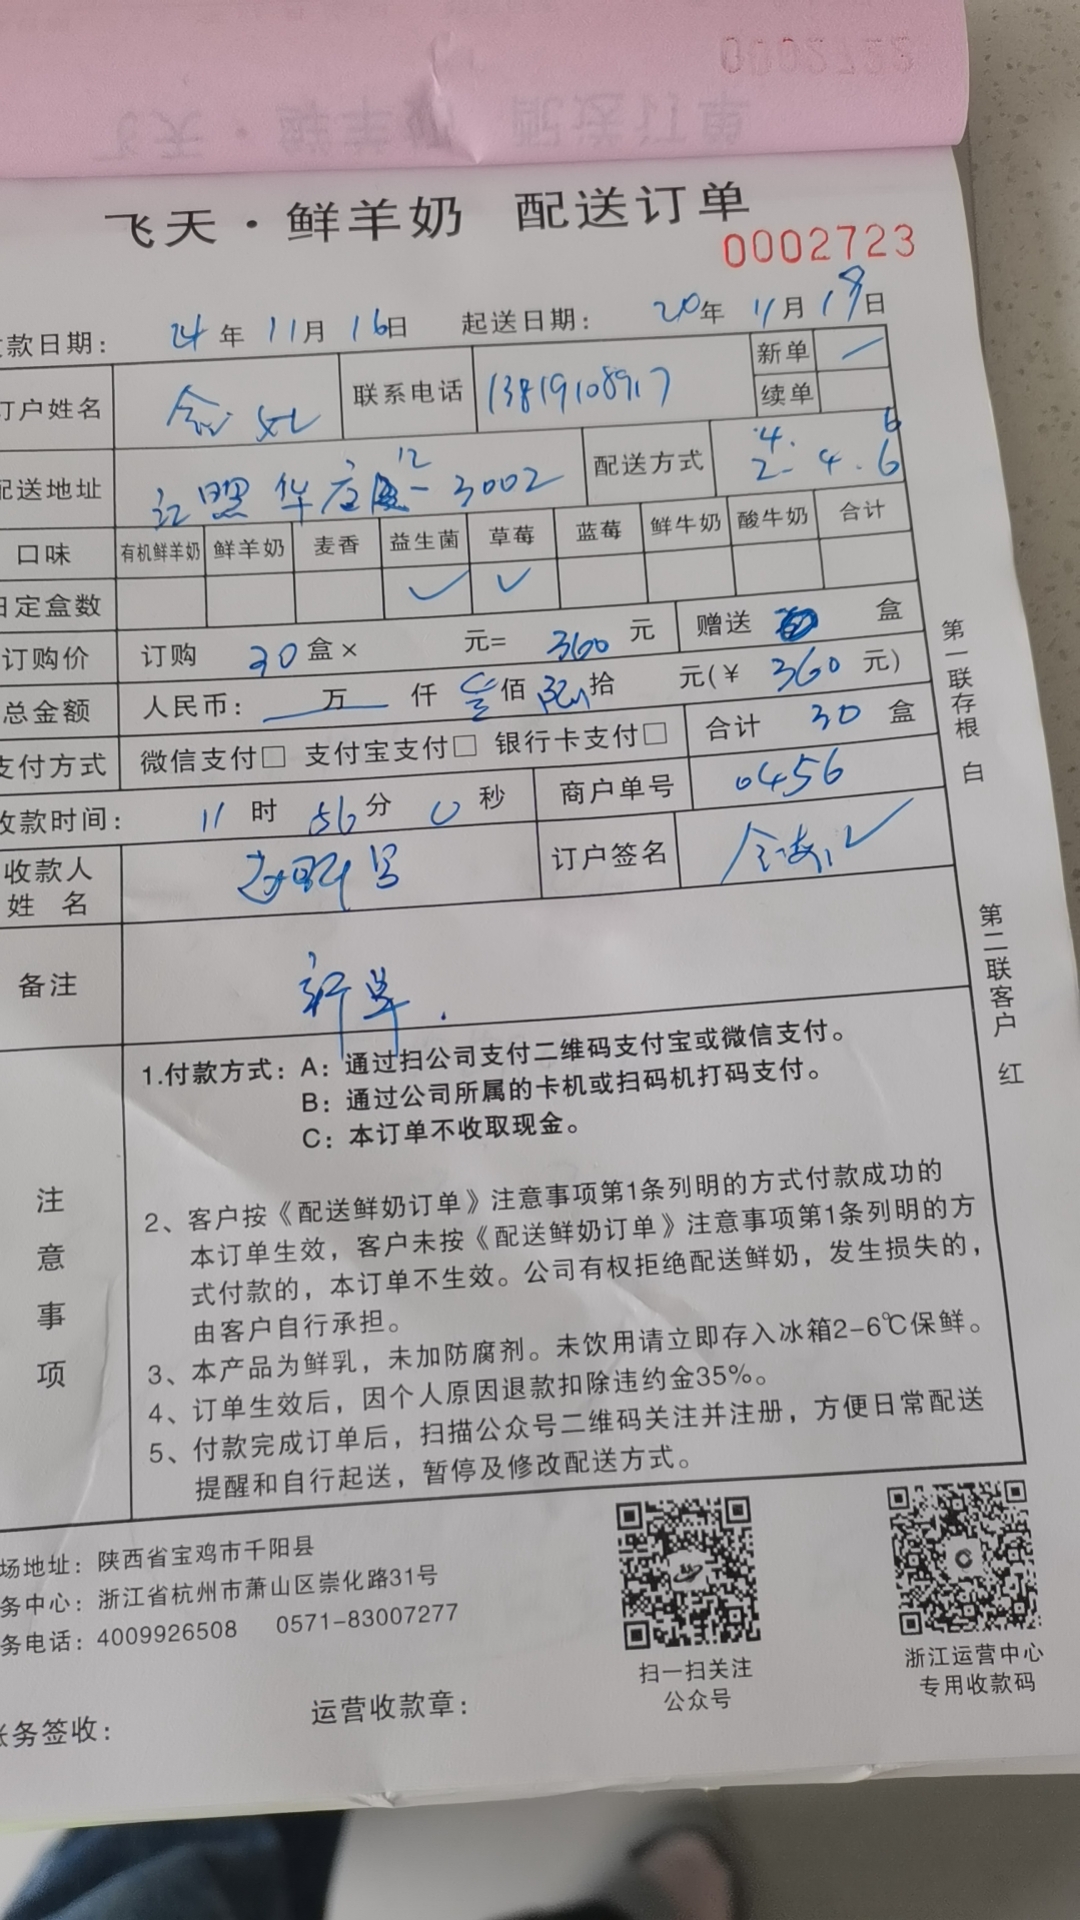 飞天·鲜羊奶 配送订单
0002723
款日期： 24年 11月 16日 起送日期： 20年 11月 18日
订户姓名 联系电话 13819108917 新单
续单
配送地址 江盟华应 12 - 3002 配送方式 2-4.6
口味 有机鲜羊奶 鲜羊奶 麦香 益生菌 草莓 蓝莓 鲜牛奶 酸牛奶 合计
日定盒数 ✓ ✓
订购价 订购 30 盒× 元= 360 元 赠送 盒
总金额 人民币： 万 仟 叁佰 陆拾 元(¥ 360 元)
支付方式 微信支付□ 支付宝支付□ 银行卡支付□ 合计 30 盒
收款时间： 11 时 56 分 0 秒 商户单号 0456
收款人
姓 名 订户签名
备注 新单.
注意事项
1.付款方式：A：通过扫公司支付二维码支付宝或微信支付。
B：通过公司所属的卡机或扫码机打码支付。
C：本订单不收取现金。
2、客户按《配送鲜奶订单》注意事项第1条列明的方式付款成功的
本订单生效，客户未按《配送鲜奶订单》注意事项第1条列明的方
式付款的，本订单不生效。公司有权拒绝配送鲜奶，发生损失的，
由客户自行承担。
3、本产品为鲜乳，未加防腐剂。未饮用请立即存入冰箱2-6℃保鲜。
4、订单生效后，因个人原因退款扣除违约金35%。
5、付款完成订单后，扫描公众号二维码关注并注册，方便日常配送
提醒和自行起送，暂停及修改配送方式。
第一联存根 白
第二联客户 红
场地址：陕西省宝鸡市千阳县
务中心：浙江省杭州市萧山区崇化路31号
务电话：4009926508 0571-83007277
扫一扫关注
公众号
浙江运营中心
专用收款码
账务签收： 运营收款章：